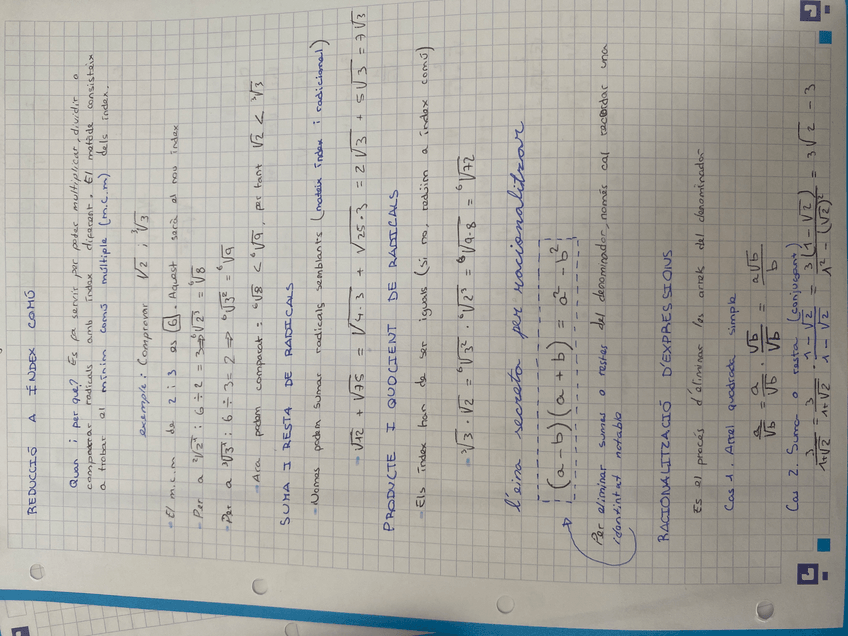 REDUCCIÓ A ÍNDEX COMÚ
Quan i per que? Es fa servir per poder multiplicar, dividir o
comparar radicals amb índex diferent. El mètode consisteix
a trobar el mínim comú múltiple (m.c.m) dels índex.
exemple: Comprovar √2 i ³√3
- El m.c.m de 2 i 3 es 6. Aquest serà el nou índex
- Per a ²√2 : 6 ÷ 2 = 3 ⇒ ⁶√2³ = ⁶√8
- Per a ³√3 : 6 ÷ 3 = 2 ⇒ ⁶√3² = ⁶√9
- Ara podem comparar: ⁶√8 < ⁶√9, per tant √2 < ³√3
SUMA I RESTA DE RADICALS
- Nomes podem sumar radicals semblants (mateix índex i radicional)
- √12 + √75 = √4·3 + √25·3 = 2√3 + 5√3 = 7√3
PRODUCTE I QUOCIENT DE RADICALS
- Els índex han de ser iguals (si no, reduïm a índex comú)
- ³√3 · √2 = ⁶√3² · ⁶√2³ = ⁶√9·8 = ⁶√72
l'eina secreta per racionalitzar
(a - b)(a + b) = a² - b²
Per eliminar sumes o restes del denominador, només cal recordar una
identintat notable
RACIONALITZACIÓ D'EXPRESSIONS
Es el procés d'eliminar les arrels del denominador
Cas 1. Arrel quadrada simple
a/√b = a/√b · √b/√b = a√b/b
Cas 2. Suma o resta (conjugant)
3/1+√2 = 3/1+√2 · 1-√2/1-√2 = 3(1-√2)/1²-(√2)² = 3√2 - 3